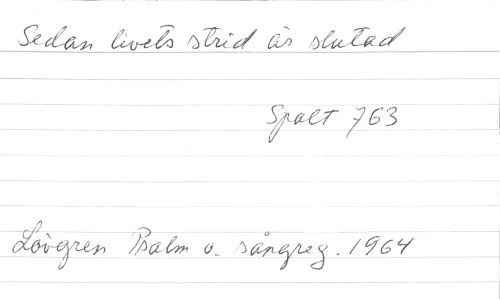 Sedan livets strid är slutad
Spalt 763
Lövgren Psalm o. sångreg. 1964